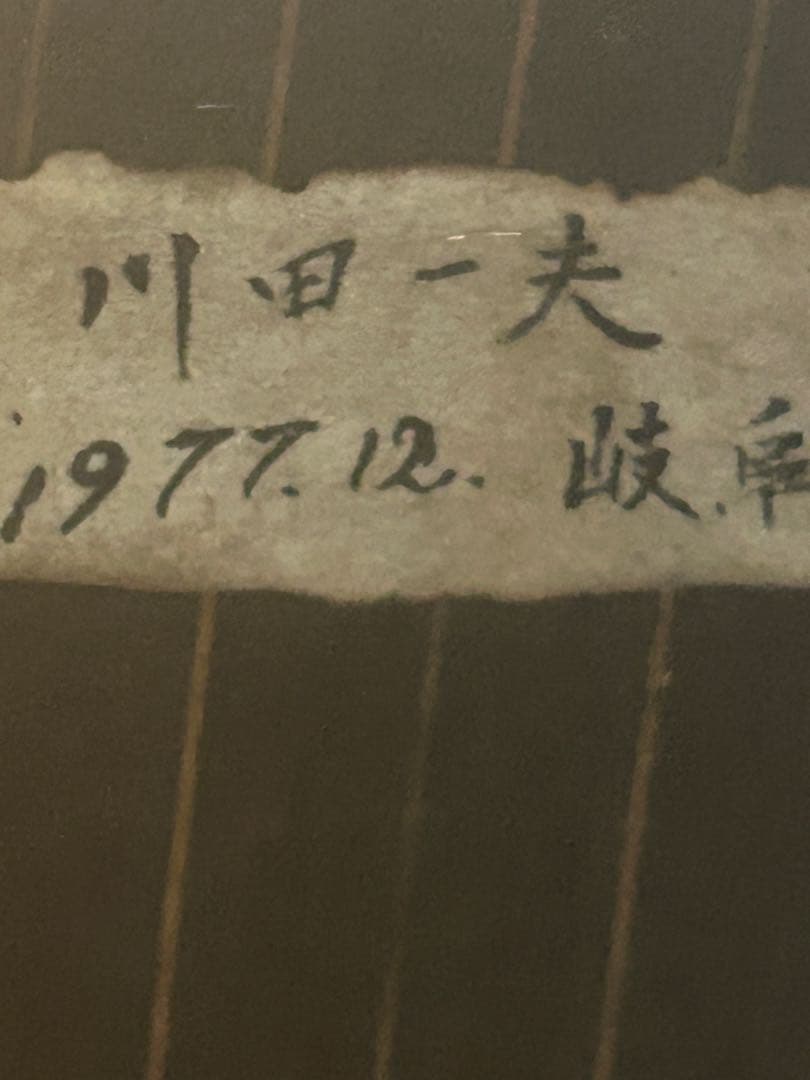 川田一夫
1977.12. 岐阜